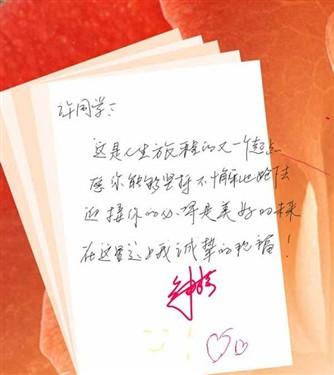 许同学：
这是人生旅程的又一个起点
愿你能够坚持不懈地跑下去
迎接你的必将是美好的未来
在这里送上我诚挚的祝福！